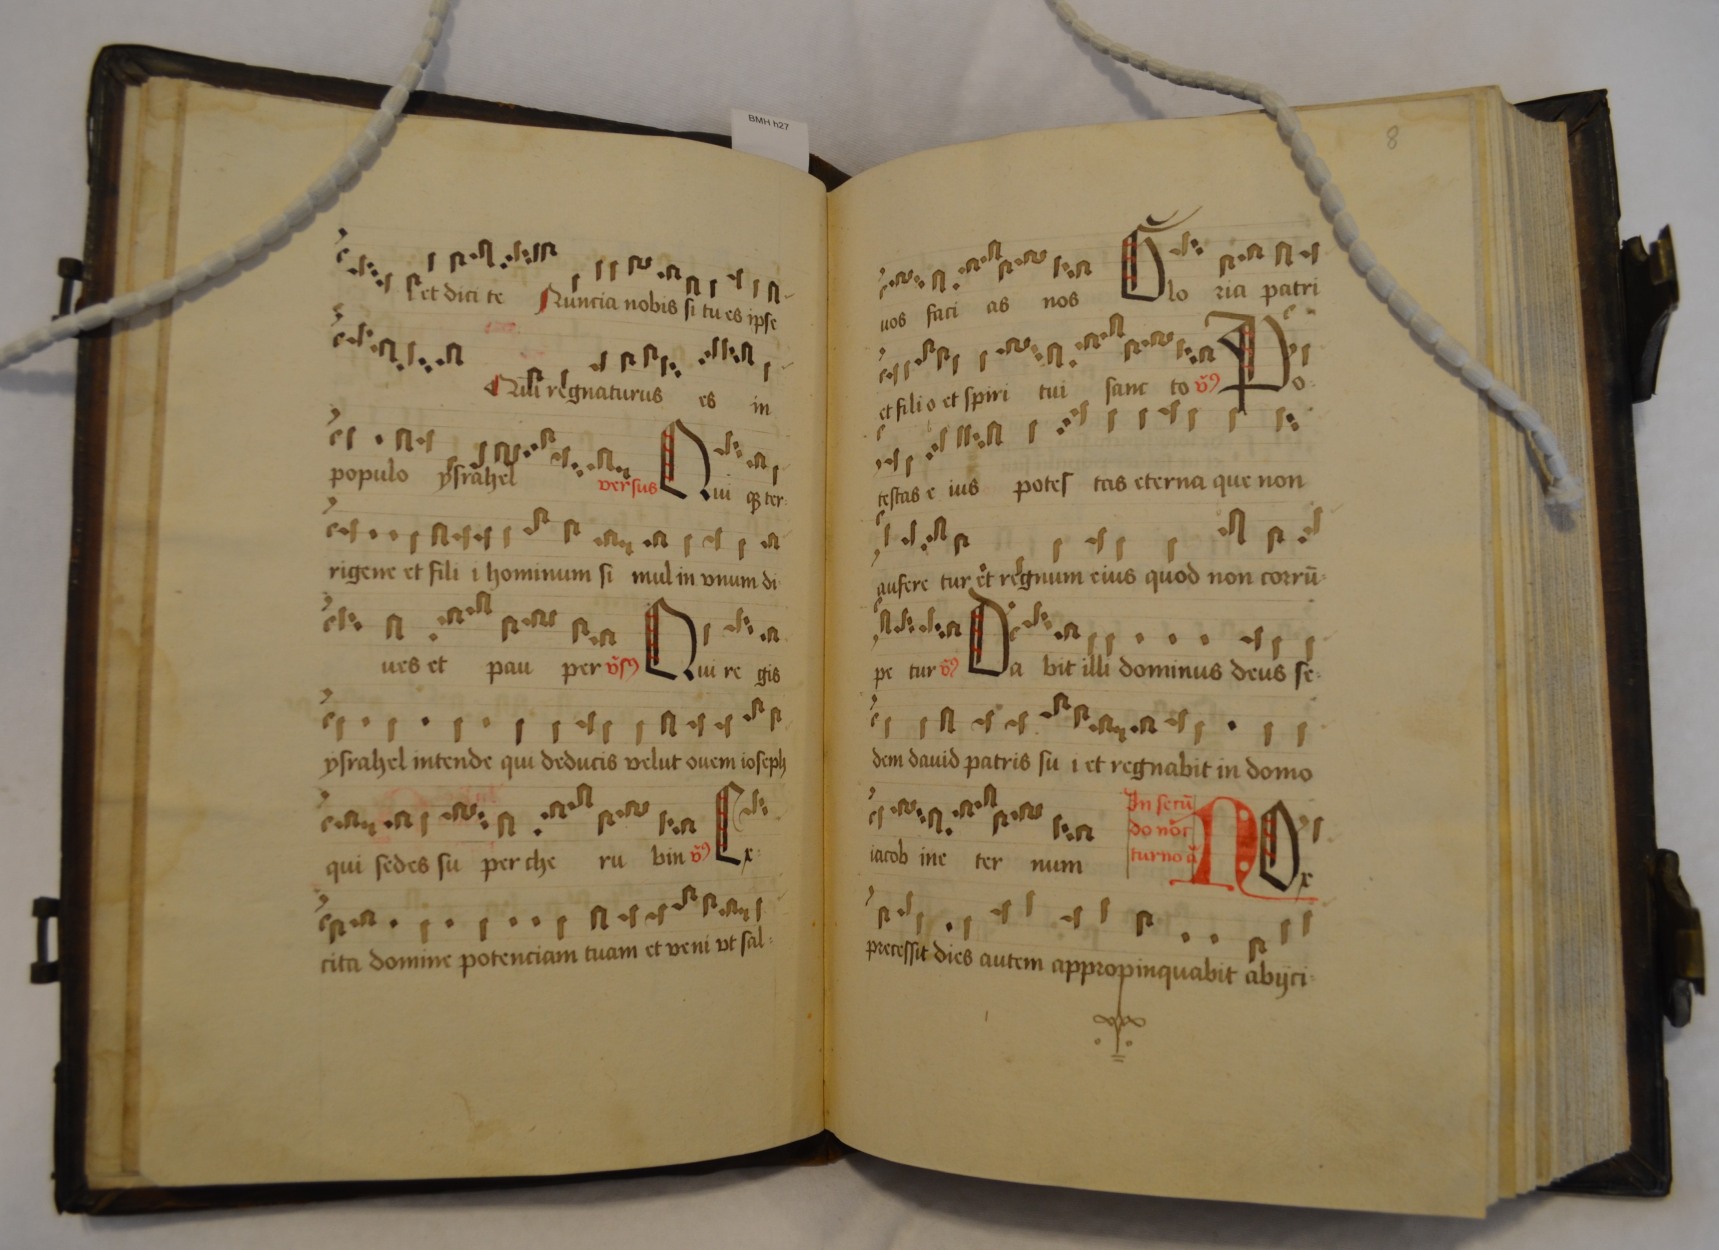 BMH h27
et dici te Nuncia nobis si tu es ipse
Qui regnaturus es in
populo ysrahel versus Qui ter
rigene et fili i hominum si mul in vnum di
ues et pau per Qui re gis
ysrahel intende qui deducis velut ouem ioseph
qui sedes su per che ru bin Ex
cita domine potenciam tuam et veni vt sal
8
uos faci as nos Glo ria patri
et filio et spiri tui sanc to Po
testas e ius potes tas eterna que non
aufere tur et regnum eius quod non corrū
pe tur Da bit illi dominus deus se
dem dauid patris su i et regnabit in domo
iacob ine ter num
In secū
do noc
turno
Nox
precessit dies autem appropinquabit abijci